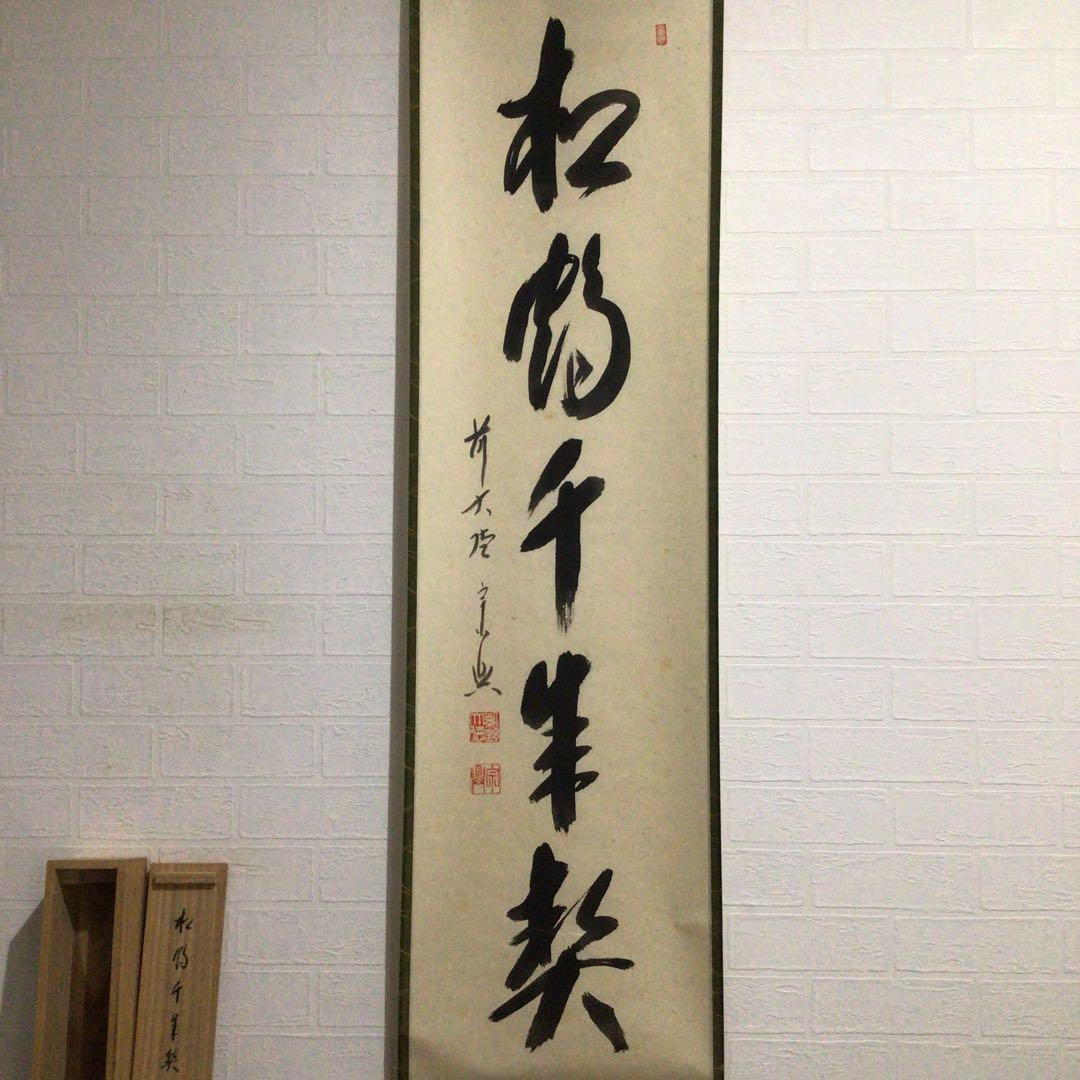 松鶴千年契
前大徳宗興
松鶴千年契